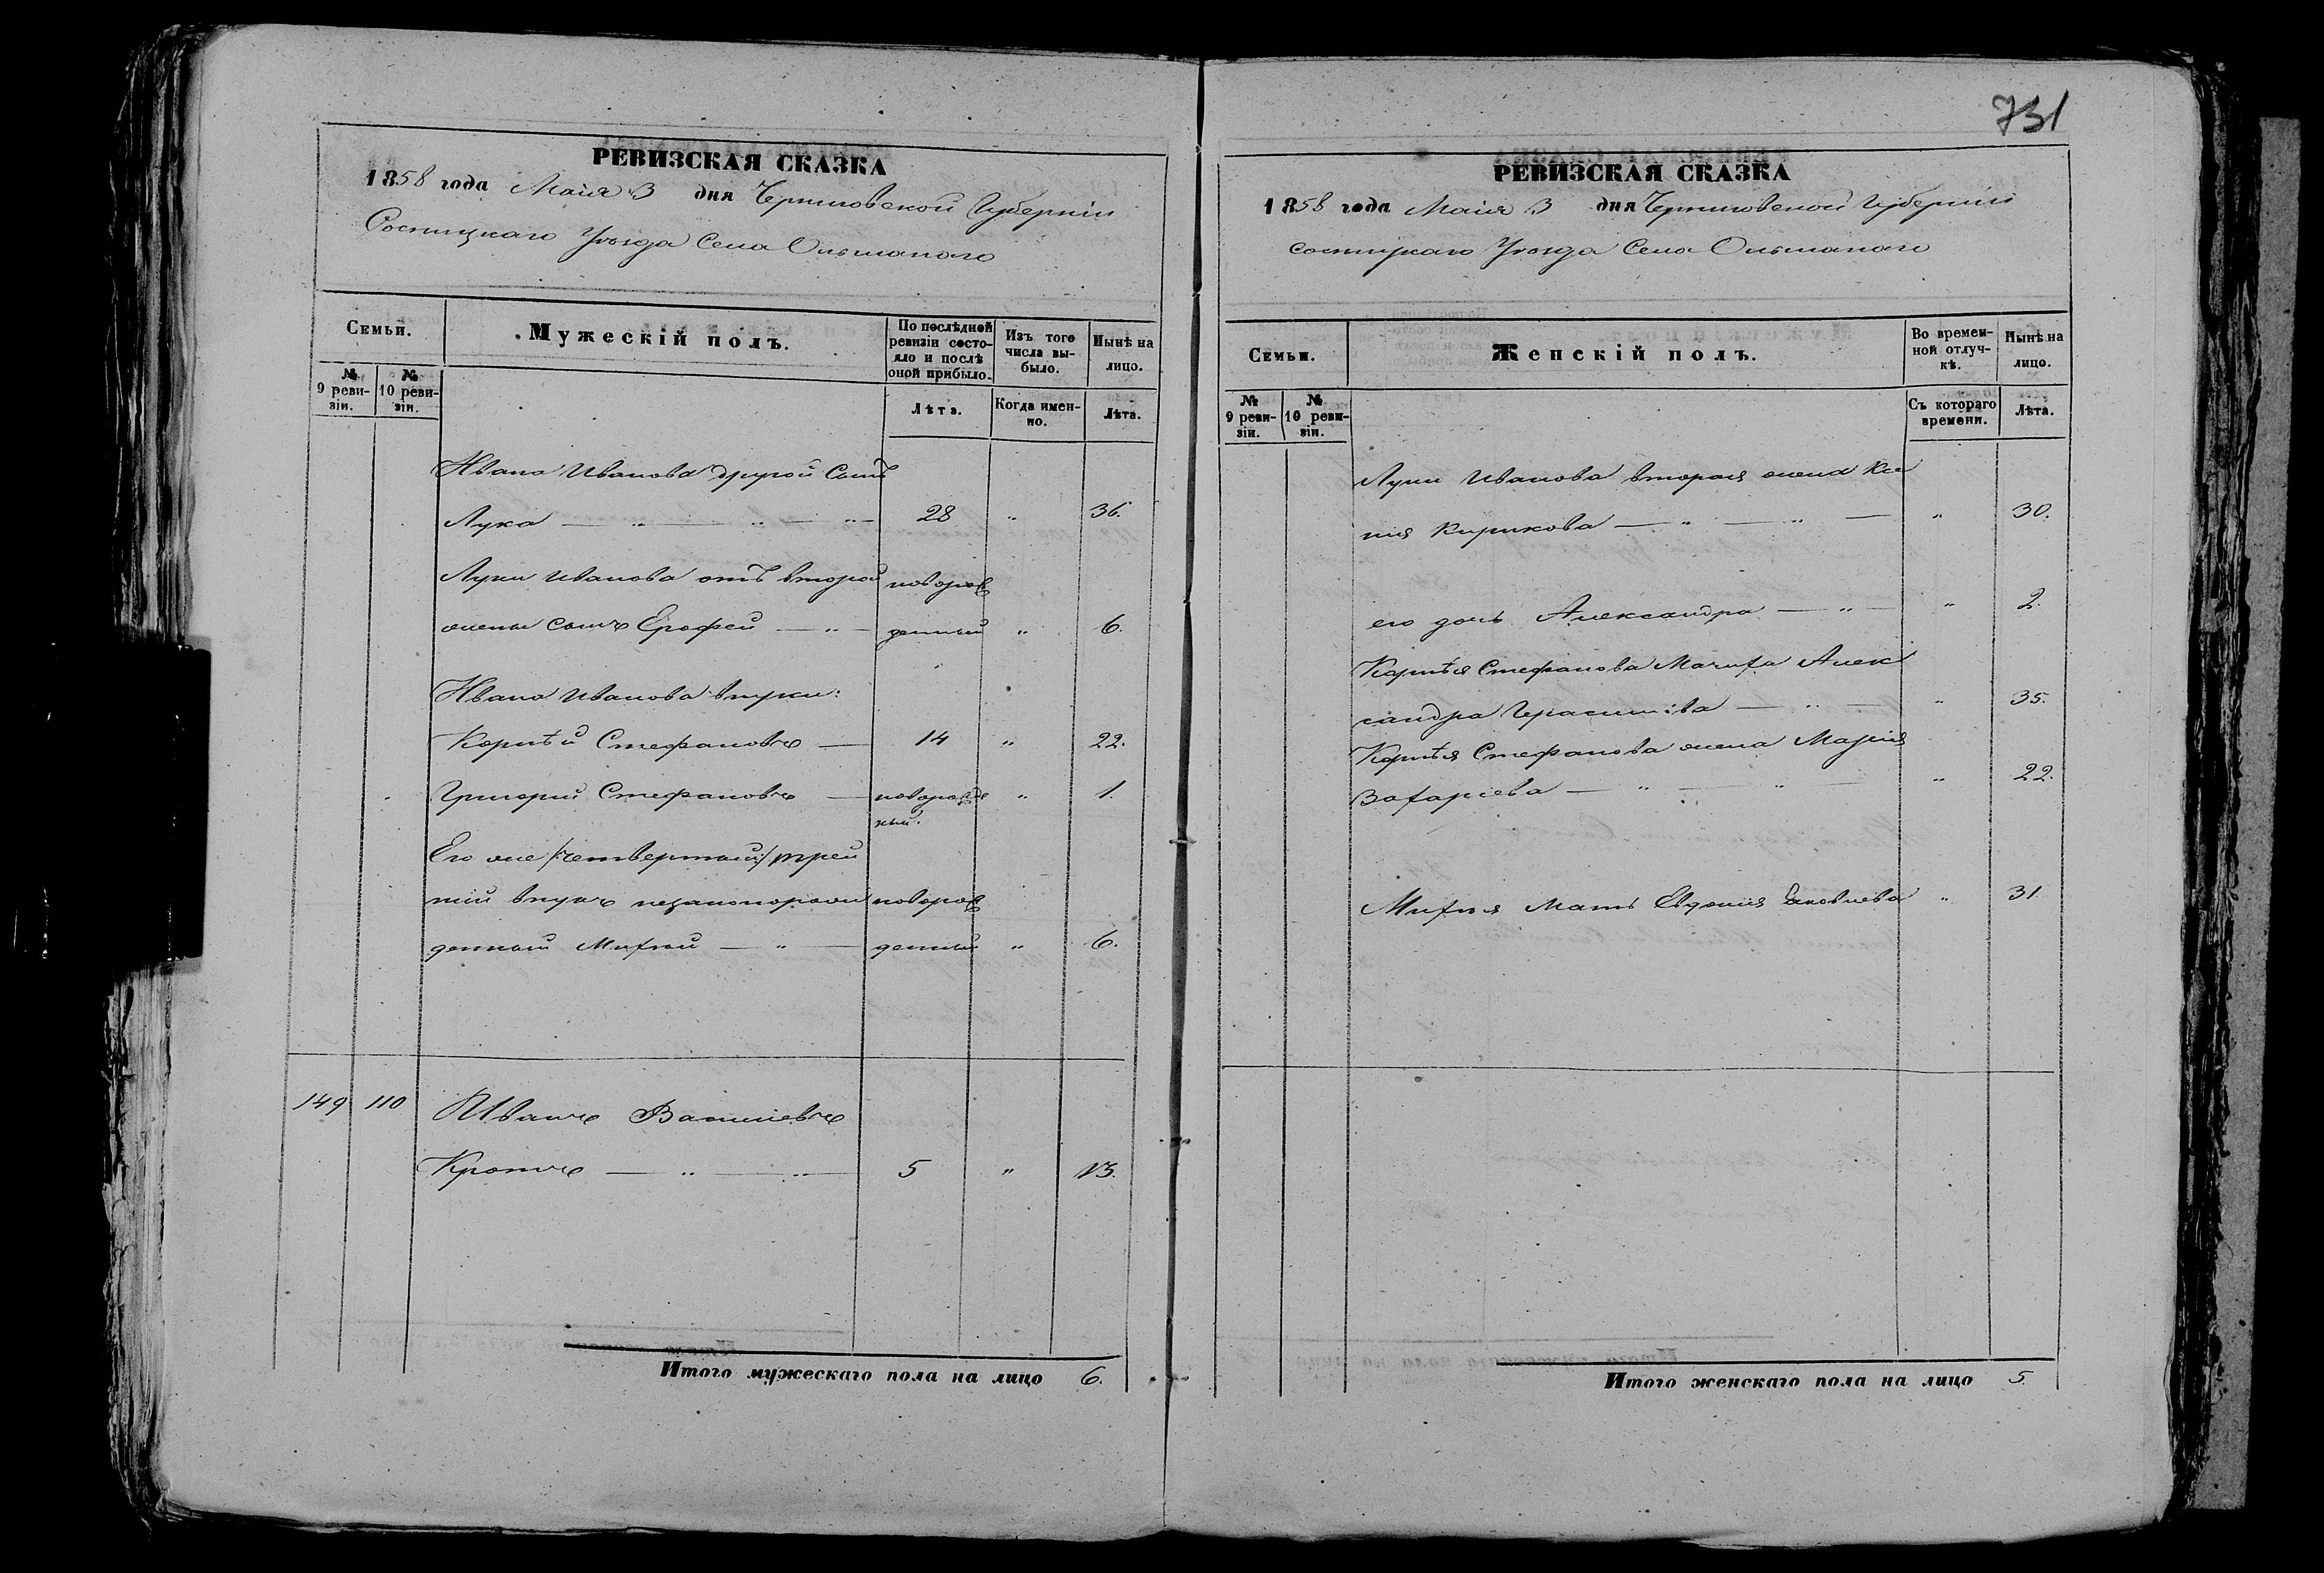 731
РЕВИЗСКАЯ СКАЗКА
1858 года Маія 3 дня Черниговской Губерніи
Сосницкаго Уѣзда Села Ольшанаго
Семьи.
Мужескій полъ.
По послѣдней ревизіи состояло и послѣ оной прибыло.
Изъ того числа выбыло.
Нынѣ на лицо.
№ 9 ревизіи.
№ 10 ревизіи.
Лѣта.
Когда именно.
Лѣта.
Ивана Иванова другой Сынъ
Лука — „ — „ — „ — 28 „ 36.
Луки Иванова отъ второй новорож
жены сынъ Ерофей — „ — денный „ 6.
Ивана Иванова внуки:
Корнѣй Стефановъ — 14 „ 22.
Григорий Стефановъ — новорожде „ 1.
ный.
Его же /:четвертый:/ трей
тій внукъ незаконорож новорож
денный Михѣй — „ — денный „ 6.
149 110 Иванъ Васильевъ
Кротъ — „ — „ — 5 „ 13.
Итого мужескаго пола на лицо 6.
РЕВИЗСКАЯ СКАЗКА
1858 года Маія 3 дня Черниговской Губерніи
сосницкаго Уѣзда Села Ольшанаго
Семьи.
Женскій полъ.
Во временной отлучкѣ.
Нынѣ на лицо.
№ 9 ревизіи.
№ 10 ревизіи.
Съ котораго времени.
Лѣта.
Луки Иванова вторая жена Ксе
нія Кирикова — „ — „ — „ 30.
его дочь Александра — „ — „ 2.
Корнѣя Стефанова Мачиха Алек
сандра Герасимова — „ — „ 35.
Корнѣя Стефанова жена Марія
Захаріева — „ — „ — „ 22.
Михѣя Мать Евдокия Яковлева „ 31.
Итого женскаго пола на лицо 5.